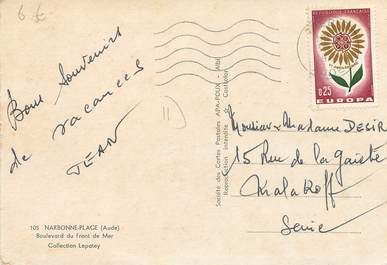 6 €
Bons Souvenirs
de vacances
JEAN
11
105 NARBONNE-PLAGE (Aude)
Boulevard du Front de Mer
Collection Lapatey
Société des Cartes Postales APA-POUX - Albi
Reproduction interdite Castelet
REPUBLIQUE FRANÇAISE
0,25
EUROPA
Monsieur & Madame DESIR
15 Rue de la Gaieté
Malakoff
Seine